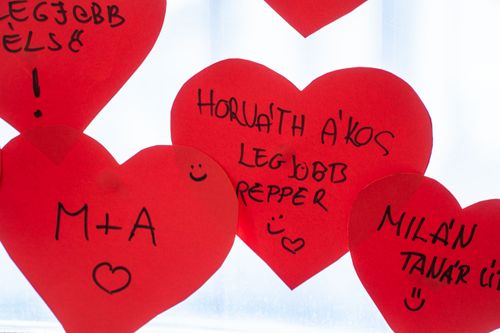 LEGJOBB
ELSŐ
!
HORVÁTH ÁKOS
LEGJOBB
REPPER
M+A
MILÁN
TANÁR